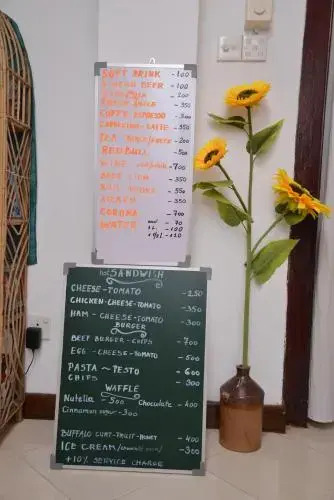 SOFT DRINK - 100
GINGER BEER - 100
- 200
- 350
COFFE ESPRESSO - 300
CAPPUCCINO-LATTE - 350
TEA - 200
RED BULL - 500
WINE - 700
- 350
- 550
- 350
CORONA - 700
WATER
hot SANDWISH
CHEESE-TOMATO - 250
CHICKEN-CHEESE-TOMATO - 350
HAM - CHEESE-TOMATO - 300
BURGER
BEEF BURGER - CHIPS - 700
EGG - CHEESE - TOMATO - 500
PASTA ~ PESTO - 600
CHIPS - 300
WAFFLE
Nutella - 500 Chocolate - 400
Cinnamon sugar - 300
BUFFALO CURT-FRUIT-HONEY - 400
ICE CREAM/ - 300
+ 10% SERVICE CHARGE